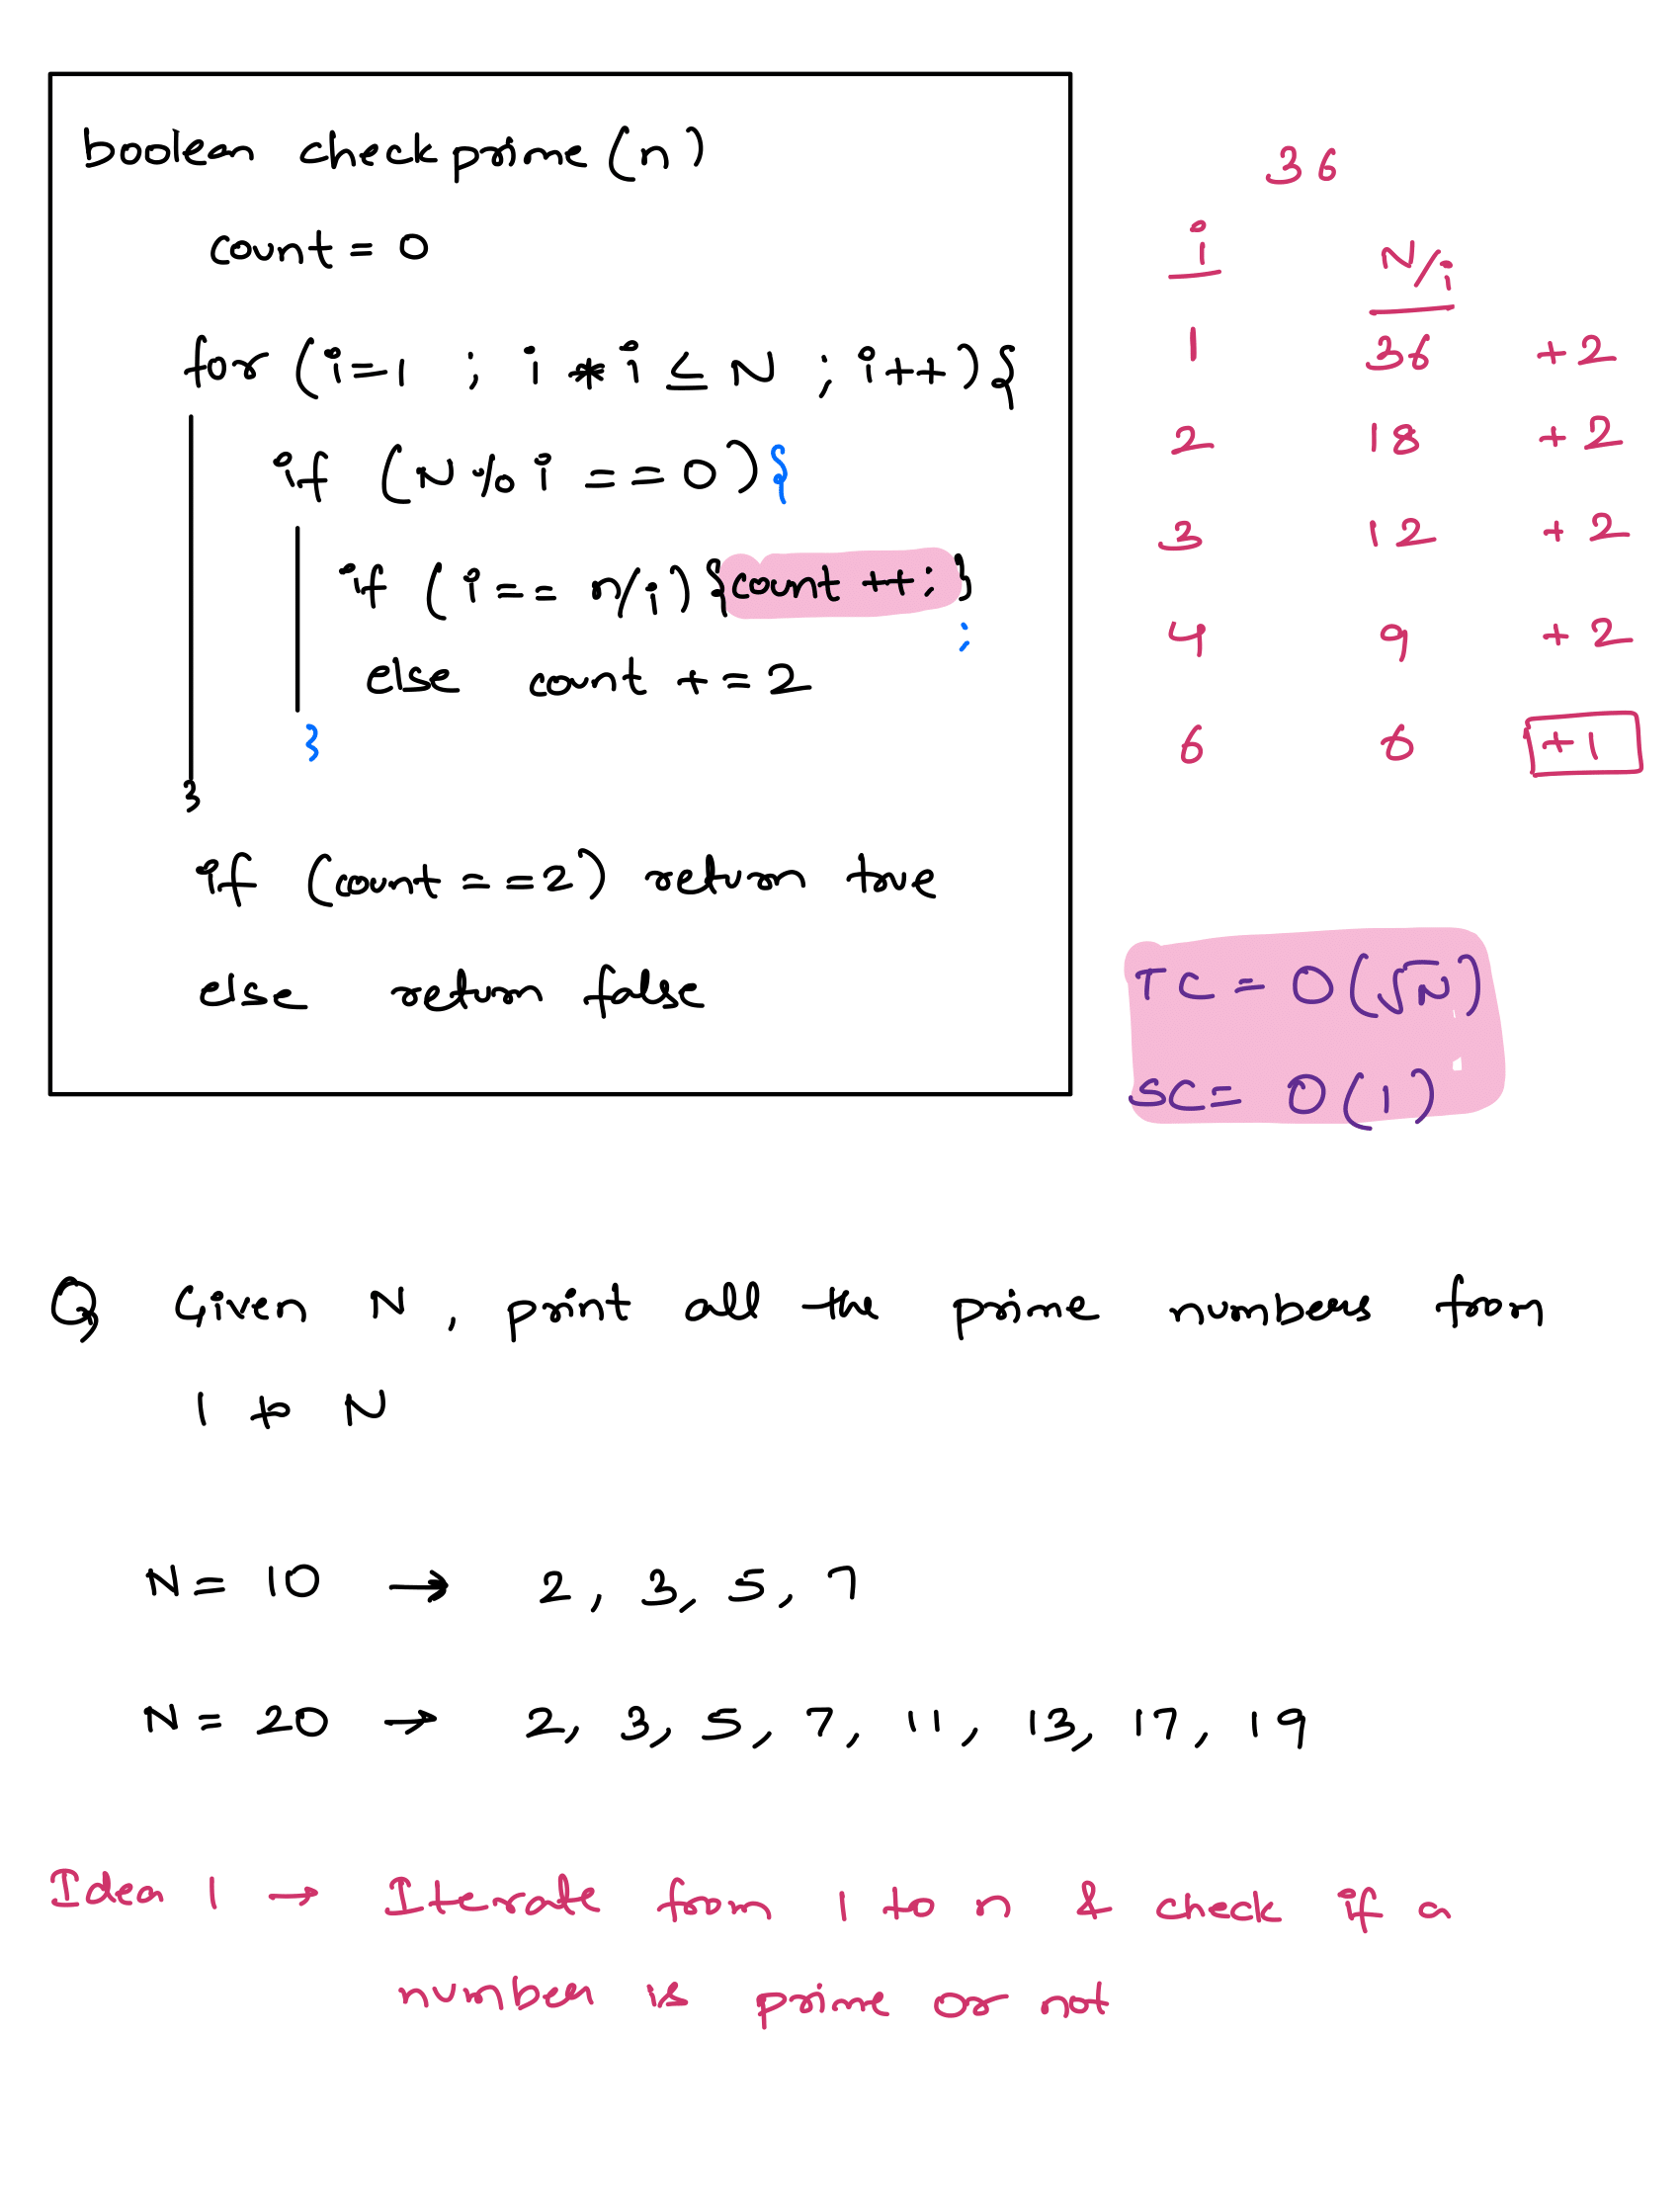 boolean checkprime(n)
count = 0
for (i=1 ; i * i ≤ N ; i++){
if (N % i == 0){
if (i == n/i){count ++;}
;
else count += 2
}
}
if (count == 2) return true
else return false
36
i N/i
1 36 +2
2 18 +2
3 12 +2
4 9 +2
6 6 +1
TC = O(√N)
SC = O(1)
Q Given N, print all the prime numbers from
1 to N
N = 10 → 2, 3, 5, 7
N = 20 → 2, 3, 5, 7, 11, 13, 17, 19
Idea 1 → Iterate from 1 to n & check if a
number is prime or not